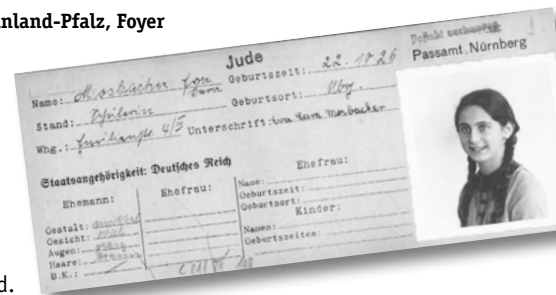 nland-Pfalz, Foyer
Jude
Passamt Nürnberg
Name: Mosbacher Eva Sara
Geburtszeit: 22.10.26
Stand: Schülerin
Geburtsort: Nbg.
Whg.: 4/I
Unterschrift: Eva Sara Mosbacher
Staatsangehörigkeit: Deutsches Reich
Ehemann:
Ehefrau:
Ehefrau:
Gestalt: mittel
Gesicht: oval
Augen: grau
Haare: braun
B.K.:
Name:
Geburtszeit:
Geburtsort:
Kinder:
Namen:
Geburtszeiten:
d.